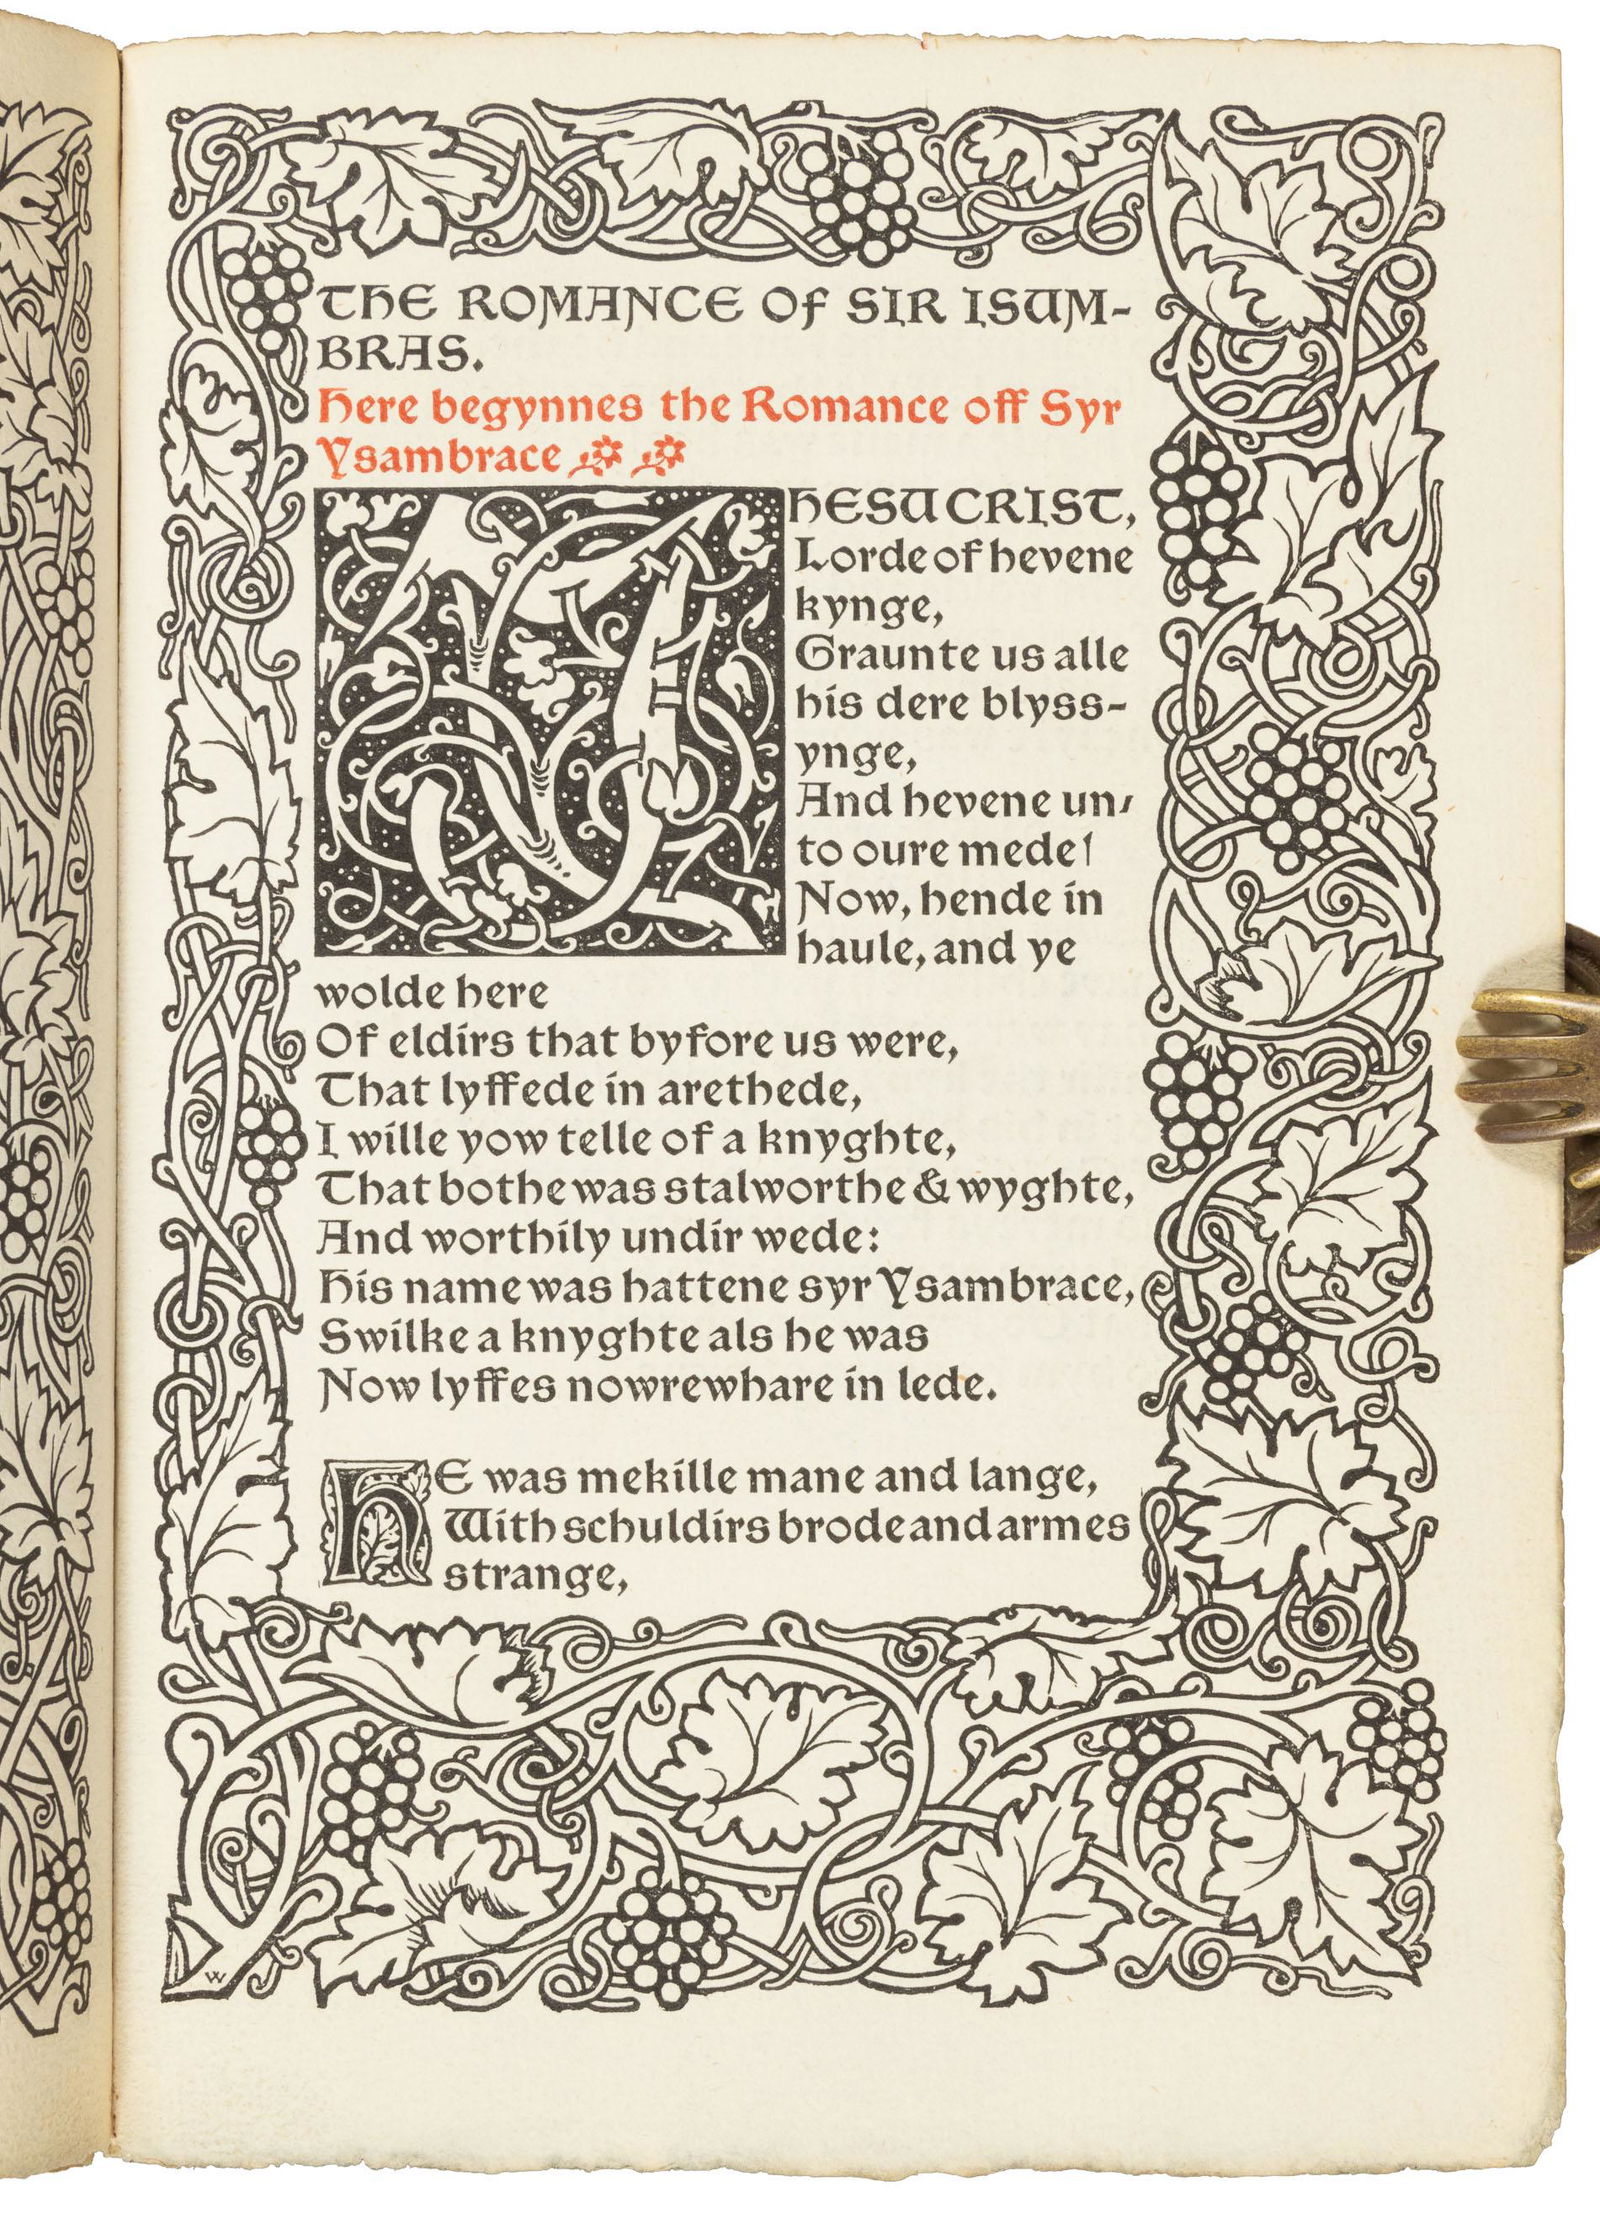 THE ROMANCE OF SIR ISUM-
BRAS.
Here begynnes the Romance off Syr
Ysambrace
JHESU CRIST,
Lorde of hevene
kynge,
Graunte us alle
his dere blyss-
ynge,
And hevene un-
to oure mede!
Now, hende in
haule, and ye
wolde here
Of eldirs that byfore us were,
That lyffede in arethede,
I wille yow telle of a knyghte,
That bothe was stalworthe & wyghte,
And worthily undir wede:
His name was hattene syr Ysambrace,
Swilke a knyghte als he was
Now lyffes nowrewhare in lede.
HE was mekille mane and lange,
With schuldirs brode and armes
strange,
W